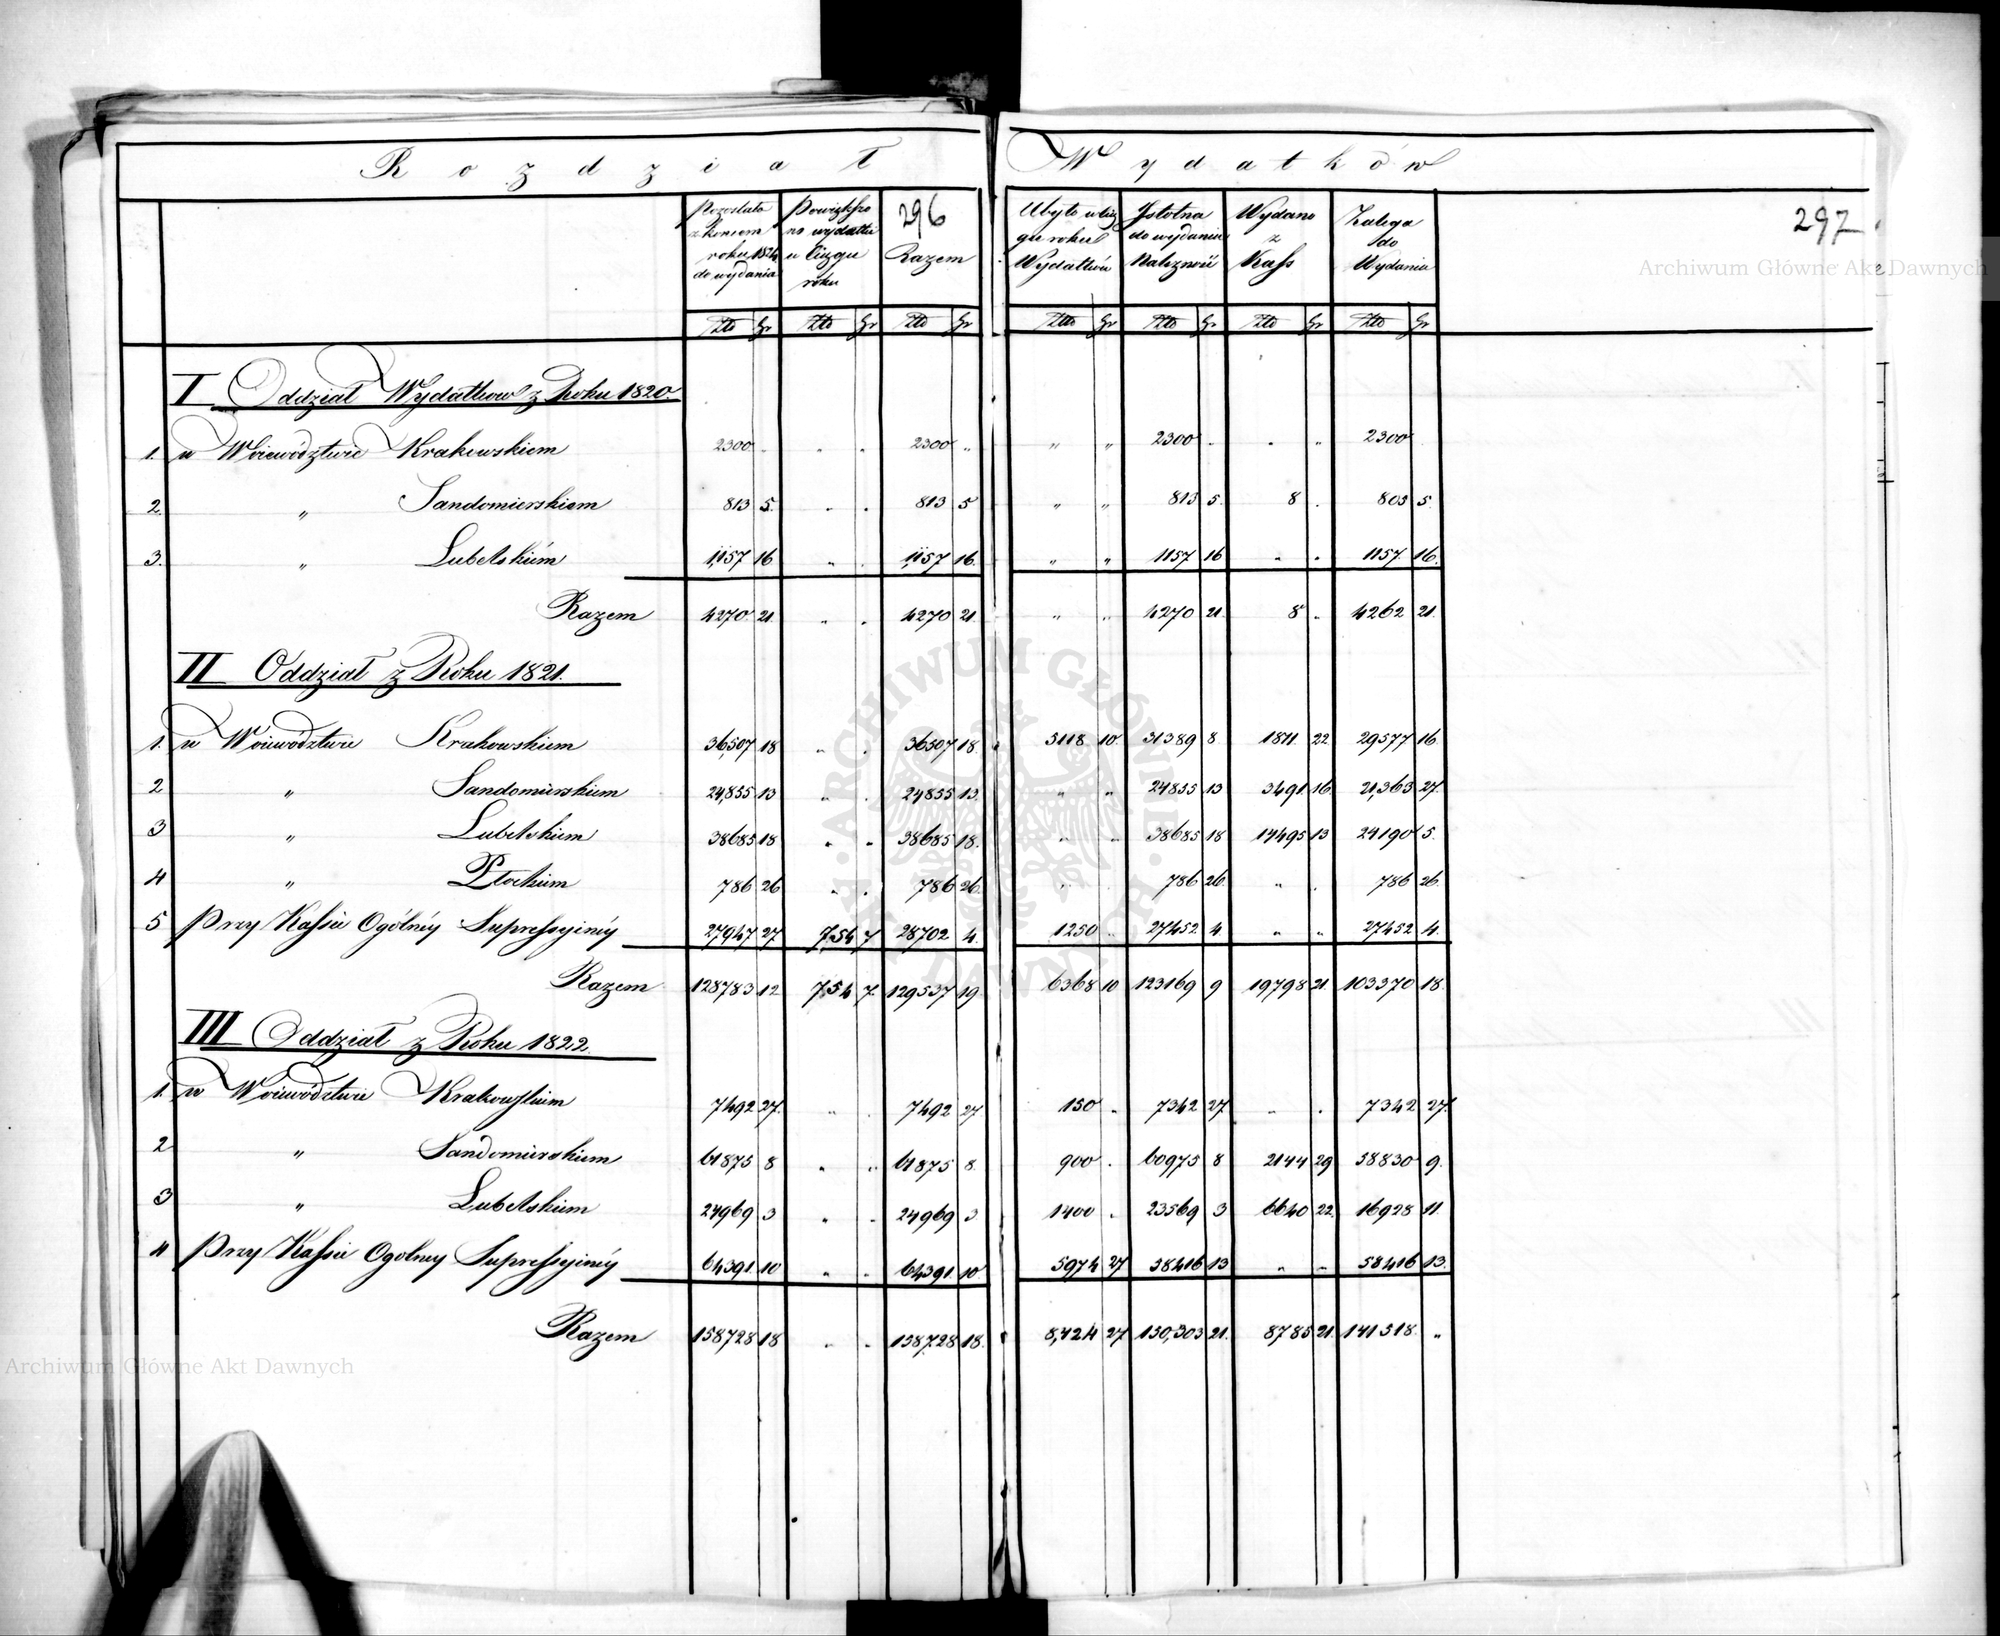 Rozdział Wydatków
296
297
Pozostało z końcem roku 1824 do wydania
Powiększono wydatki w ciągu roku
Razem
Ubyło w ciągu roku Wydatków
Istotna do wydania Należność
Wydano z Kass
Zalega do Wydania
Złto Gr Złto Gr Złto Gr Złto Gr Złto Gr Złto Gr Złto Gr
I Oddział Wydatkow z Roku 1820.
1. w Woiewództwie Krakowskiem 2300 . . . 2300 „ „ „ 2300 . . „ 2300
2. „ Sandomierskiem 813 5. . . 813 5 „ „ 813 5. 8 . 805 5.
3. „ Lubelskiém 1157 16 „ . 1157 16. „ „ 1157 16 „ „ 1157 16.
Razem 4270 21 „ . 4270 21. „ „ 4270 21. 8 „ 4262 21.
II Oddział z Roku 1821.
1. w Woiewództwie Krakowskiem 36,507 18 „ . 36507 18. 5118 10. 31389 8 1811 22 29577 16
2 „ Sandomierskiem 24,855 13 „ . 24855 13. „ „ 24855 13 3491 16 21,363 27.
3 „ Lubelskiem 38685 18 „ „ 38685 18. „ „ 38685 18 14495 13 24190 5.
4 „ Płockiem 786 26 „ . 786 26. „ . 786 26. „ . 786 26.
5 Przy Kassie Ogólnéy Supressyinéy 27947 27 754 7 28702 4. 1250 „ 27452 4 „ „ 27452 4.
Razem 128783 12 754 7. 129537 19. 6368 10 123169 9 19798 21. 103370 18.
III Oddział z Roku 1822.
1. w Woiewództwie Krakowskiem 7492 27. „ . 7492 27 150 „ 7342 27 „ . 7342 27.
2 „ Sandomierskiem 61875 8 „ „ 61875 8. 900 . 60975 8 2144 29 58830 9.
3 „ Lubelskiem 24969 3 „ „ 24969 3 1400 „ 23569 3 6640 22. 16928 11.
4 Przy Kassie Ogolney Supressyinéy 64391 10 „ „ 64391 10. 5974 27 58416 13 „ „ 58416 13.
Razem 158728 18 „ „ 158728 18. 8,424 27 150,303 21. 8785 21. 141518. „
Archiwum Główne Akt Dawnych
Archiwum Główne Akt Dawnych
ARCHIWUM GŁÓWNE AKT DAWNYCH